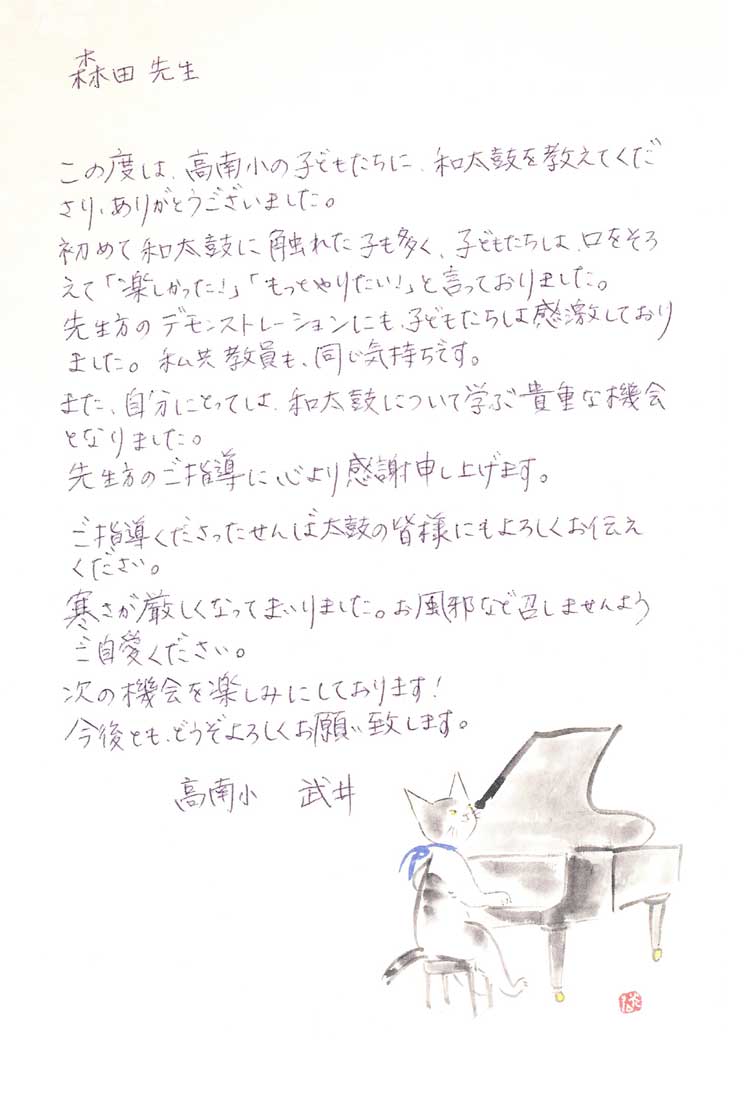 森田 先生
この度は、高南小の子どもたちに、和太鼓を教えてくだ
さり、ありがとうございました。
初めて和太鼓に触れた子も多く、子どもたちは、口をそろ
えて「楽しかった!」「もっとやりたい!」と言っておりました。
先生方のデモンストレーションにも、子どもたちは感激しており
ました。私共教員も、同じ気持ちです。
また、自分にとっては、和太鼓について学ぶ貴重な機会
となりました。
先生方のご指導に心より感謝申し上げます。
ご指導くださったせんば太鼓の皆様にもよろしくお伝え
ください。
寒さが厳しくなってまいりました。お風邪など召しませんよう
ご自愛ください。
次の機会を楽しみにしております!
今後とも、どうぞよろしくお願い致します。
高南小 武井